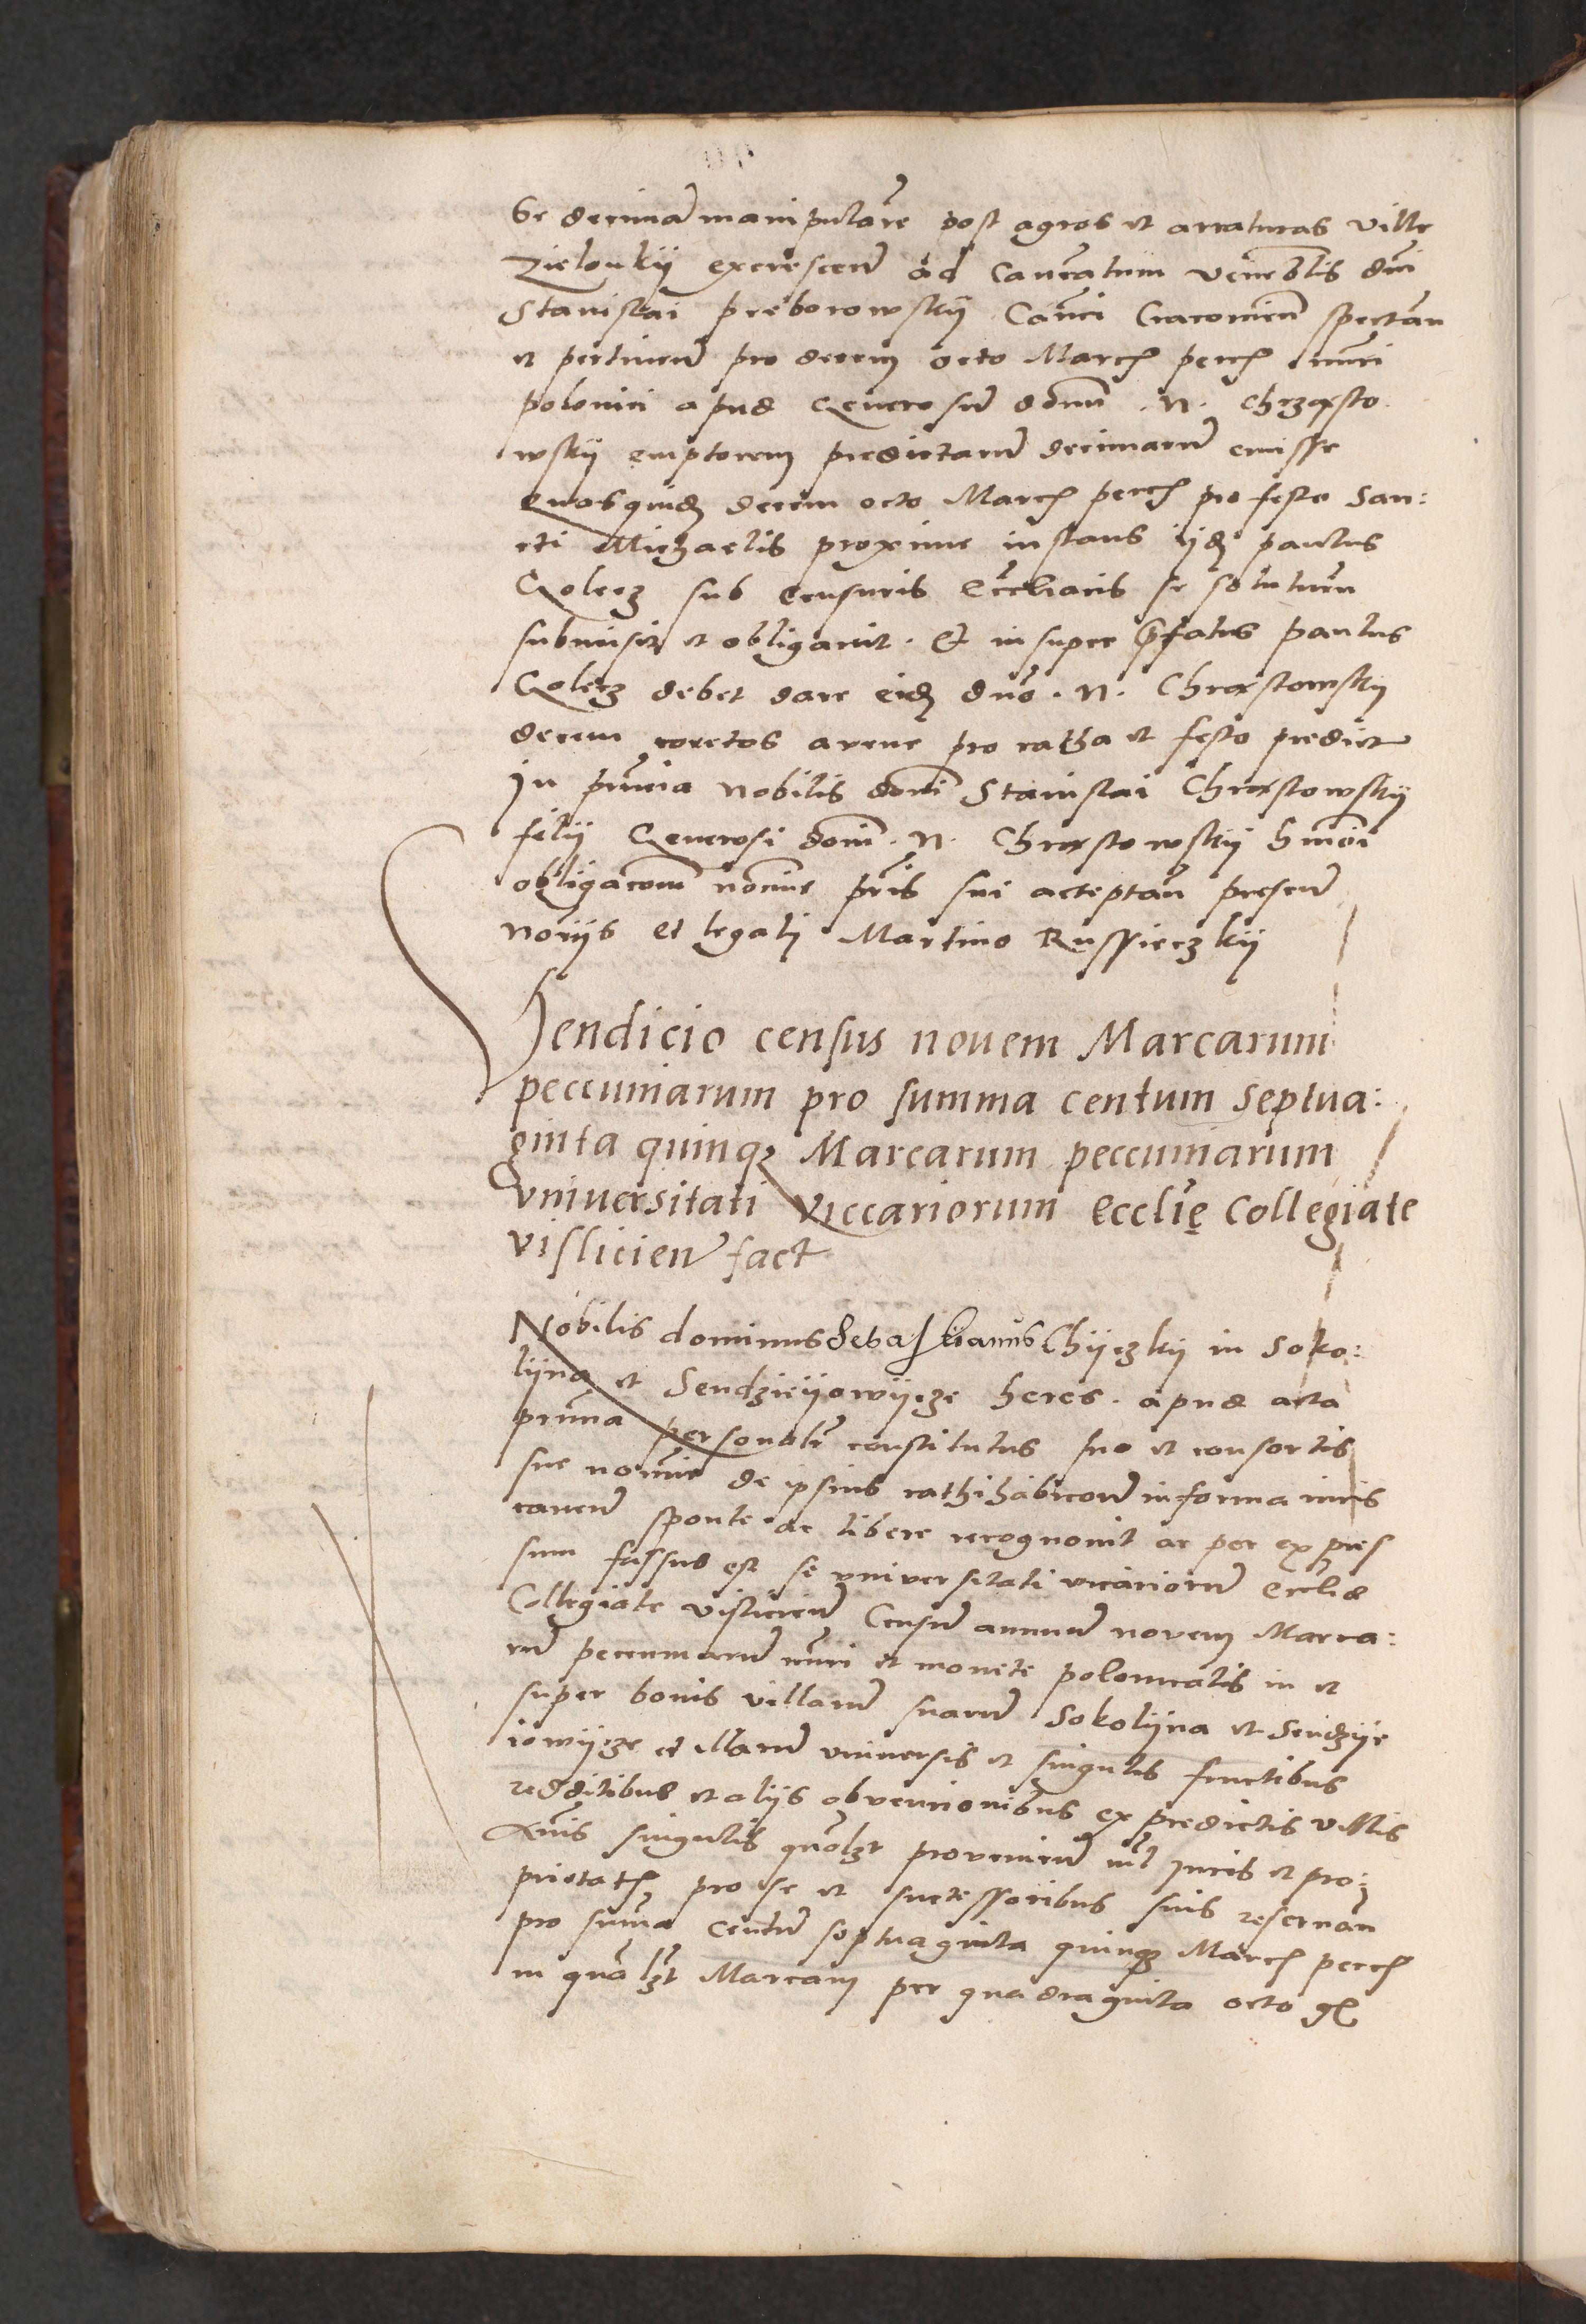 se decimã manipularẽ post agros et araturas ville
Zielonkij excrescen̄ ad Canōcatum venerblis dñi
Stanislai preborowskij Canōci Cracovien̄ spectan̄
et pertinen̄ pro decem octo March peccꝭ nūri
polonici apud Generosū dōnū .N. Chrząsto
wskij emptorem predictarū decimarū emisse
Quosquidẽ decem octo March peccꝭ pro festo San:
cti Michaelis proxime instans ijdẽ paulus
Golecz sub censuris Eccliacis se soluturū
submisit et obligavit. Et insuper p̄fatus paulus
Golecz debet dare eidẽ dnō .N. Chrąstowskij
decem coretos avene pro ratha et festo predict
In pn̄cia Nobilis dōni Stanislai Chrąstowskij
filij Generosi dōni .N. Chrąstowskij hmōi
obligacōem nōmine pr̄is sui acceptan̄ presen̄
noriis et legali Martino Russieczkij
Vendicio census novem Marcarum
peccuniarum pro summa centum septua:
ginta quinqꝫ Marcarum peccuniarum
vniversitati viccariorum Ecclię Collegiate
vislicien̄ fact
Nobilis dominus Sebastianus Chijczkij in Soko:
lijna et Sendzieijowijcze heres. apud acta
pn̄cia personalr̄ constitutus suo et consortis
sue nōmine de ipsius rathihabicoñ in forma iuris
caven̄ sponte ac libere recognovit ac per expres
sum fassus est se vniversitati vicariorū Eccliæ
Collegiate vislicien̄ Censū annuū novem Marca:
rū peccuniarū nūri et monete polonicalis in et
super bonis villarū suarū Sokolijna et Sendzije
iowijcze et illarū vniversis et singulis fructibus
redditibus et alijs obvencionibus ex predictis villis
Annis singulis quōlꝫt provenien̄ nīl Iuris et pro:
prietatꝭ pro se et successoribus suis reservan̄
pro sum̄a Centū septuaginta quinqꝫ March peccꝭ
in quālꝫt Marcam per quadraginta octo gꝭ